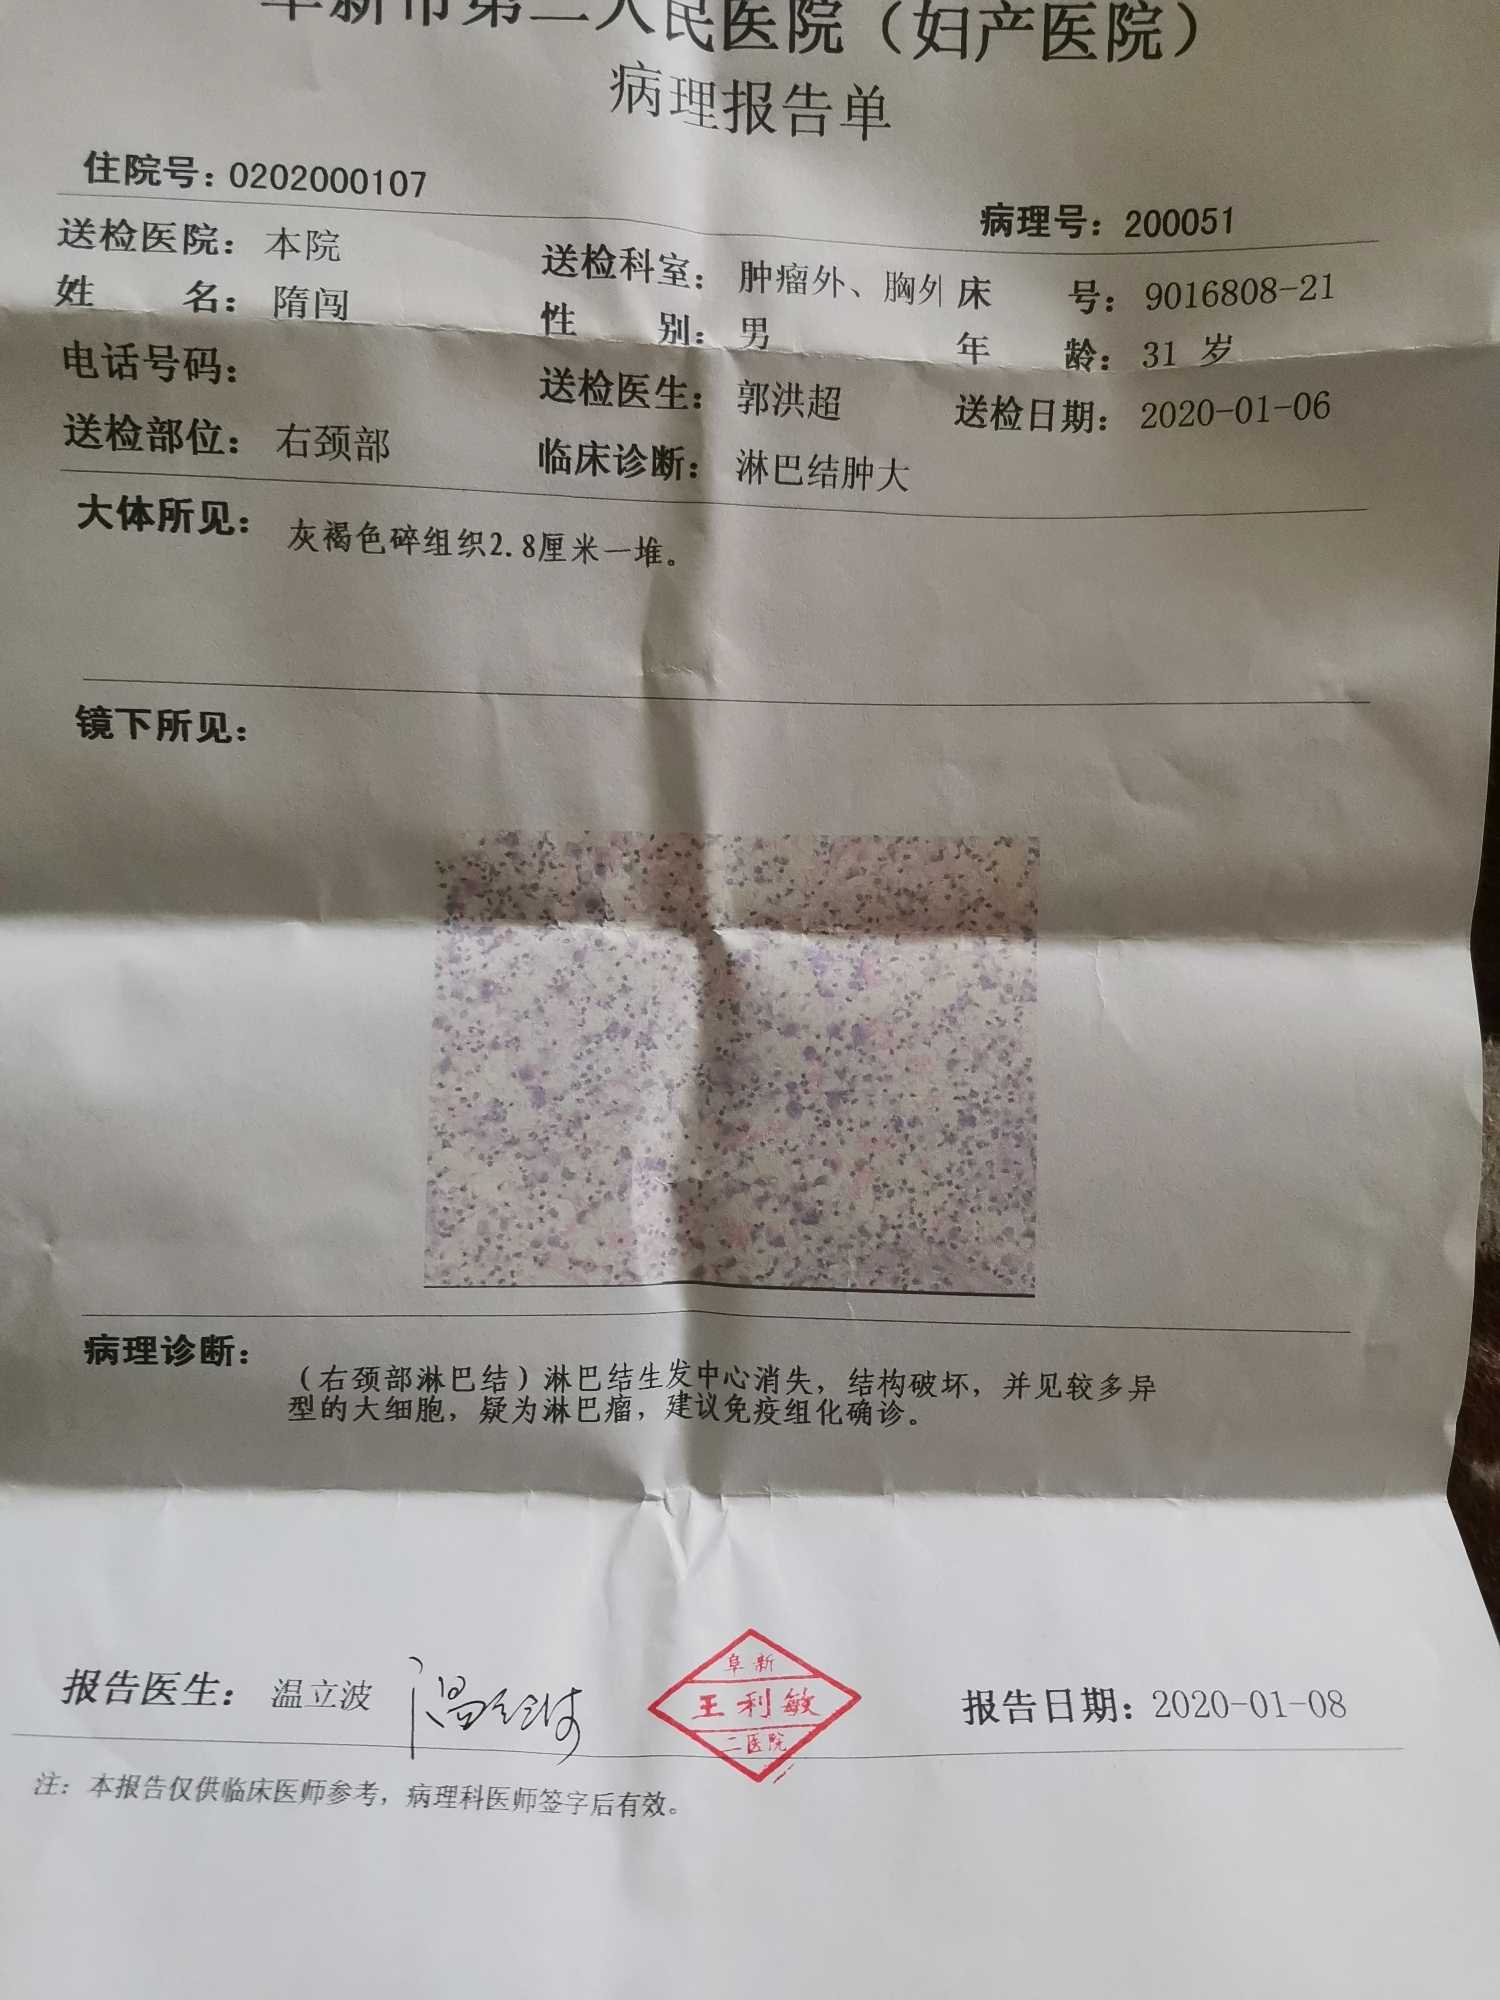 阜新市第二人民医院（妇产医院）
病理报告单
住院号：0202000107
病理号：200051
送检医院：本院 送检科室：肿瘤外、胸外 床 号：9016808-21
姓 名：隋闯 性 别：男 年 龄：31 岁
电话号码： 送检医生：郭洪超 送检日期：2020-01-06
送检部位：右颈部 临床诊断：淋巴结肿大
大体所见：灰褐色碎组织2.8厘米一堆。
镜下所见：
病理诊断：（右颈部淋巴结）淋巴结生发中心消失，结构破坏，并见较多异
型的大细胞，疑为淋巴瘤，建议免疫组化确诊。
阜新
报告医生：温立波 温立波 王利敏 报告日期：2020-01-08
二医院
注：本报告仅供临床医师参考，病理科医师签字后有效。